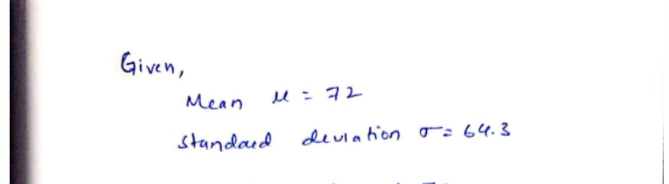 Given,
Mean μ = 72
standard deviation σ = 64.3